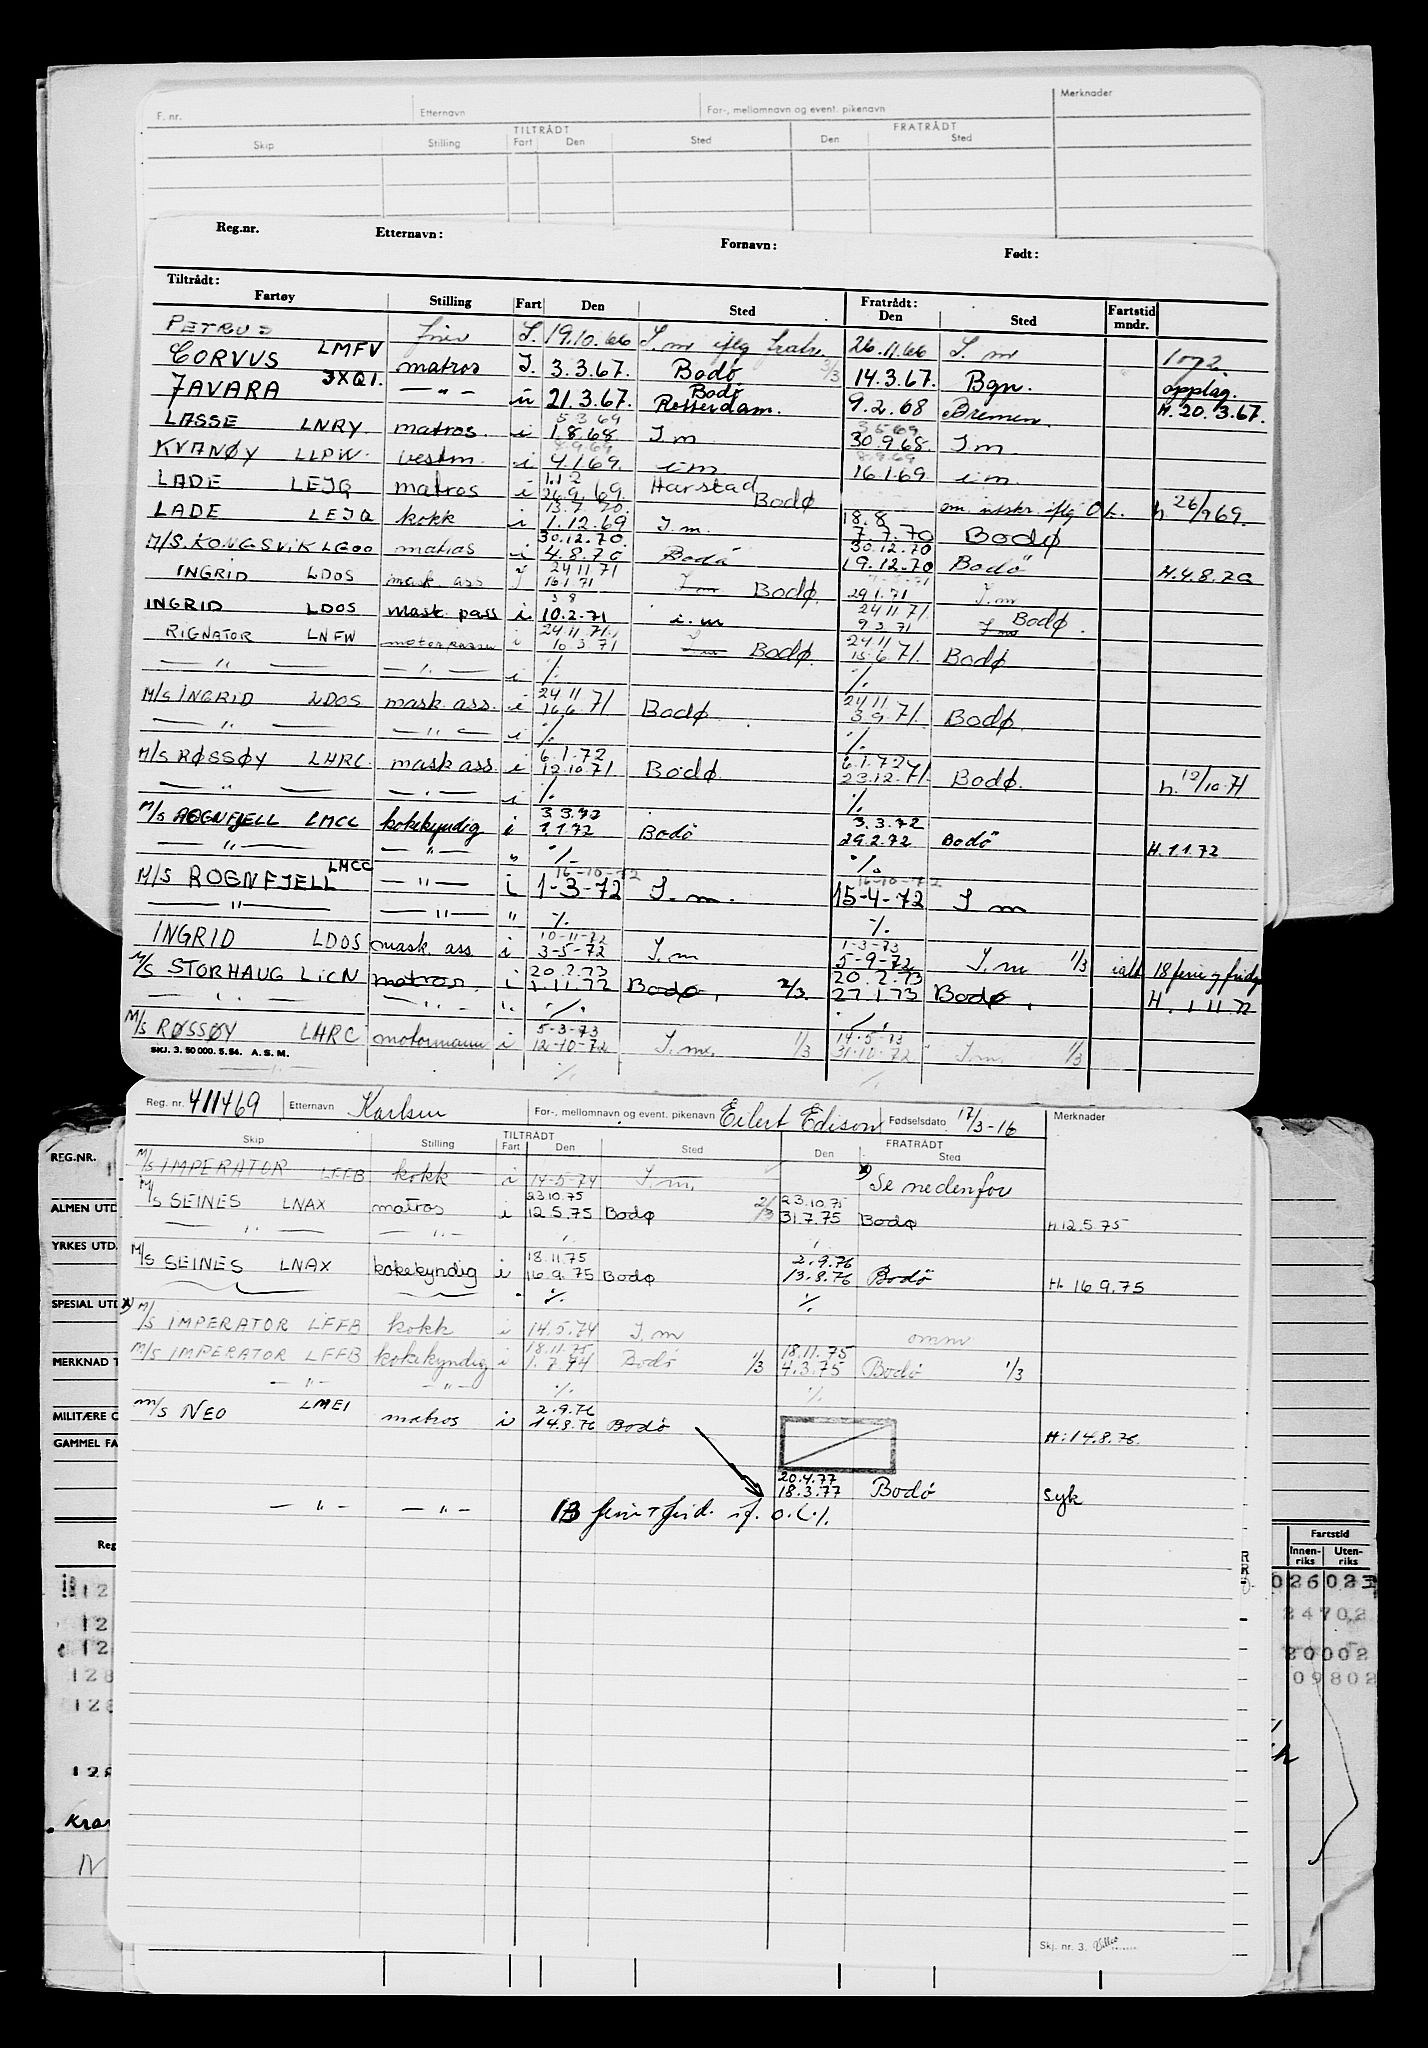 F. nr. Etternavn For-, mellomnavn og event. pikenavn Merknader
TILTRÅDT FRATRÅDT
Skip Stilling Fart Den Sted Den Sted
Reg.nr. Etternavn: Fornavn: Født:
Tiltrådt: Fratrådt:
Fartøy Stilling Fart Den Sted Den Sted Fartstid mndr.
PETRUS 19.10.66 I. m iflg 26.11.66 I. m
CORVUS LMFV matros I. 3.3.67. Bodø 3/3 14.3.67. Bgn. opplag.
JAVARA 3XQI. — " — u 21.3.67. Bodø Rotterdam. 9.2.68 Bremen. H. 20.3.67.
5 3 69
LASSE LNRY matros. i 1.8.68 I m 30.9.68. I m.
8.9.69 8.9.69
KVANØY LLPW. vestm. i 4.1.69. i m 16.1.69. i m.
LADE LEJQ matros i 26.9.69. Harstad Bodø om. utskr. iflg O.L. h 26/9 69.
13.7.70. 18.8
LADE LEJQ kokk i 1.12.69 I. m. 7.7.70 Bodø
30.12.70. 30.12.70
M/S. KONGSVIK LGOO matros i 4.8.70 Bodø 19.12.70 Bodø H. 4.8.70
24 11 71
INGRID LDOS mask. ass I 16.1.71 I m Bodø. 29.1.71 I. m
3 8 24 11 71.
INGRID LDOS mask. pass i. 10.2.71 i. m 9 3 71 I m Bodø.
24.11.71. 24 11
RIGNATOR LNFW motorpasser i 10.3.71 I m Bodø. 15.6.71. Bodø
— " — — " — i ·/. ·/.
24 11 24 11
M/S INGRID LDOS mask. ass. i 16.6.71 Bodø. 3.9.71. Bodø.
— " — — " — i ·/. ·/.
6.1.72 6.1.72.
M/S RØSSØY LHRC. mask ass i 12.10.71 Bodø. 23.12.71. Bodø. h. 12/10.71
— " — — " — i ·/. ·/.
3.3.72 3.3.72
M/S ROGNFJELL LMCC kokekyndig i 1.1.72 Bodø 29.2.72 Bodø H. 1.1.72
— " — — " — " ·/. ·/.
16-10-72 16-10-72
M/S ROGNFJELL LMCC — " — i 1-3-72 I. m. 15-4-72 I m
— " — — " — " ·/. ·/.
10-11-72 1-3-73
INGRID LDOS mask. ass i 3-5-72 I. m 5-9-72 I. m 1/3 ialt 18 ferie og frid.
20.2.73 20.2.73
M/S STORHAUG LICN matros. i 1.11.72 Bodø. 2/3. 27.1.73 Bodø. H. 1.11.72
— " — — " — ". ·/. ·/.
5-3-73 14-5-73
M/S RØSSØY LHRC motormann i 12-10-72 I. m. 1/3 31-10-72 I.m. 1/3
SKJ. 3. 50 000. 5. 54. A. S. M.
— " — ·/. ·/.
Reg. nr. 411469 Etternavn Karlsen For-, mellomnavn og event. pikenavn Eilert Edison Fødselsdato 17/3-16 Merknader
TILTRÅDT FRATRÅDT
Skip Stilling Fart Den Sted Den Sted
M/S IMPERATOR LFFB kokk i 14-5-74 I.m. x) Se nedenfor
23.10.75 23.10.75
M/S SEINES LNAX matros i 12.5.75 Bodø 2/3 31.7.75 Bodø H.12.5.75
— " — — " —
18.11.75 2.9.76
M/S SEINES LNAX kokekyndig i 16.9.75 Bodø 13.8.76 Bodø H. 16.9.75
·/. ·/.
x) M/S IMPERATOR LFFB kokk i 14.5.74 I.m omm
18.11.75 18.11.75
M/S IMPERATOR LFFB kokekyndig i 1.7.74 Bodø 1/3 4.3.75 Bodø 1/3
— " — — " — ·/. ·/.
2.9.76
M/S NEO LMEI matros i 14.8.76 Bodø H: 14.8.76.
20.4.77
18.3.77 Bodø syk
— " — — " — 13 ferie + frid. if. o.l.
REG.NR.
ALMEN UTD
YRKES UTD.
SPESIAL UTD
MERKNAD T
MILITÆRE
GAMMEL FA
Reg
Fartstid
Innen-riks Uten-riks
12 02602
12 24702
12 20002
128 09802
128
128
Krar
Skj. nr. 3.